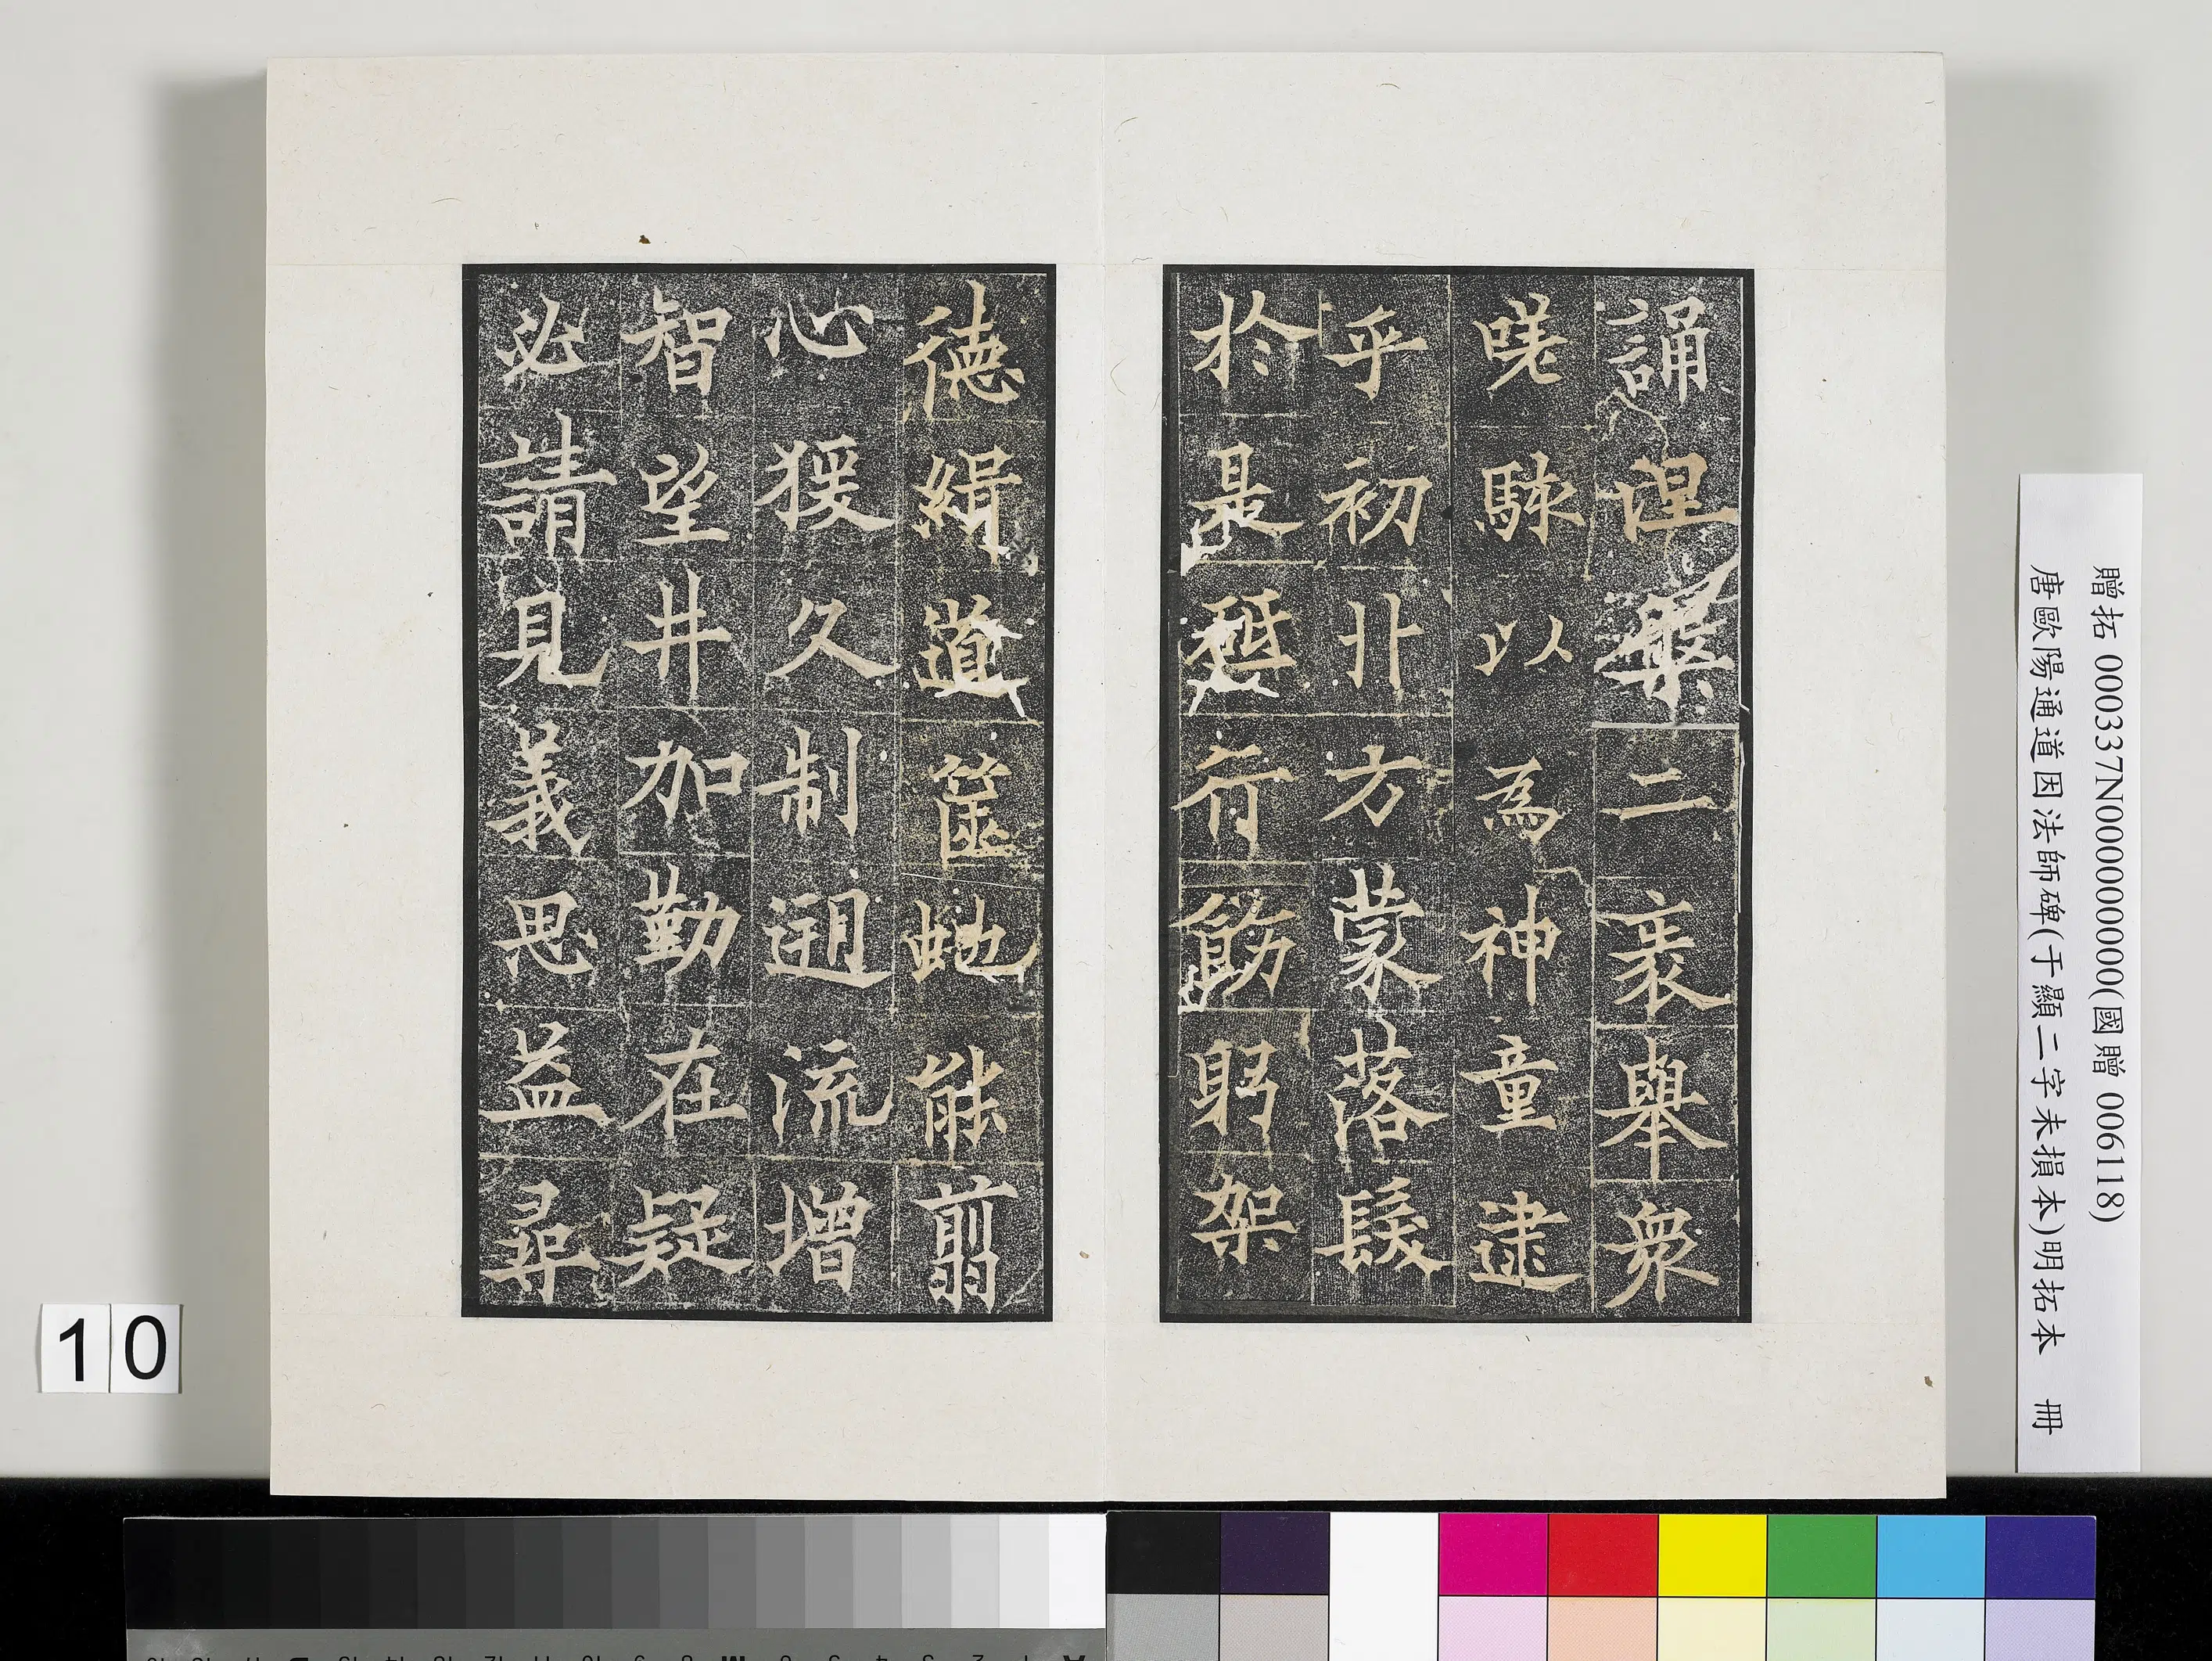 誦涅槃二袠舉衆
嗟駭以為神童逮
乎初丱方蒙落髮
於是砥行飭躬架
德緝道篋虵能翦
心猨久制迴流增
智望井加勤在疑
必請見義思益尋
贈拓 000337N000000000(國贈 006118)
唐歐陽通道因法師碑(于顯二字未損本)明拓本 冊
10